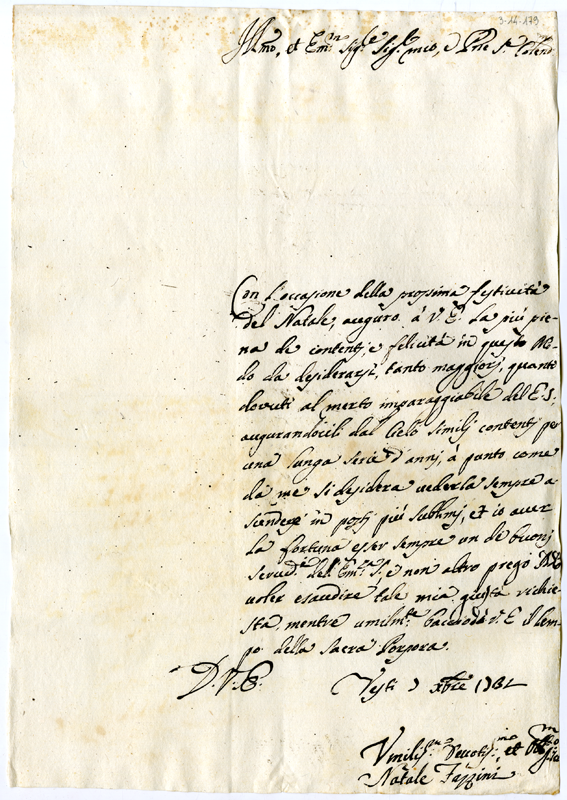 3-14-179
Ill.mo, et Em.mo Sig.re Sig.re mio, e P.ne
Con l'occasione della prossima festività
del Natale, auguro à V. E. la più pie
na de contenti, e felicità in questo
do da desiderarsi, tanto maggiorj, quanto
dovuti al merto imparaggiabile del E. S.
augurandoicili dal Cielo similj contentj per
una lunga serie d'annj, à punto come
da me si desidera vederla sempre a
scendere in postj più sublimj, et io aver
la fortuna esser sempre un de buonj
servid.i dell'Em.za S. e non altro prego
voler esaudire tale mia giusta richie
sta, mentre umilm.te bacciado à V. E. il lem
po della Sacra Porpora.
D. V. E.
9 Xbre
Umiliss.mo Devotis.mo, et
Natale Fazzini